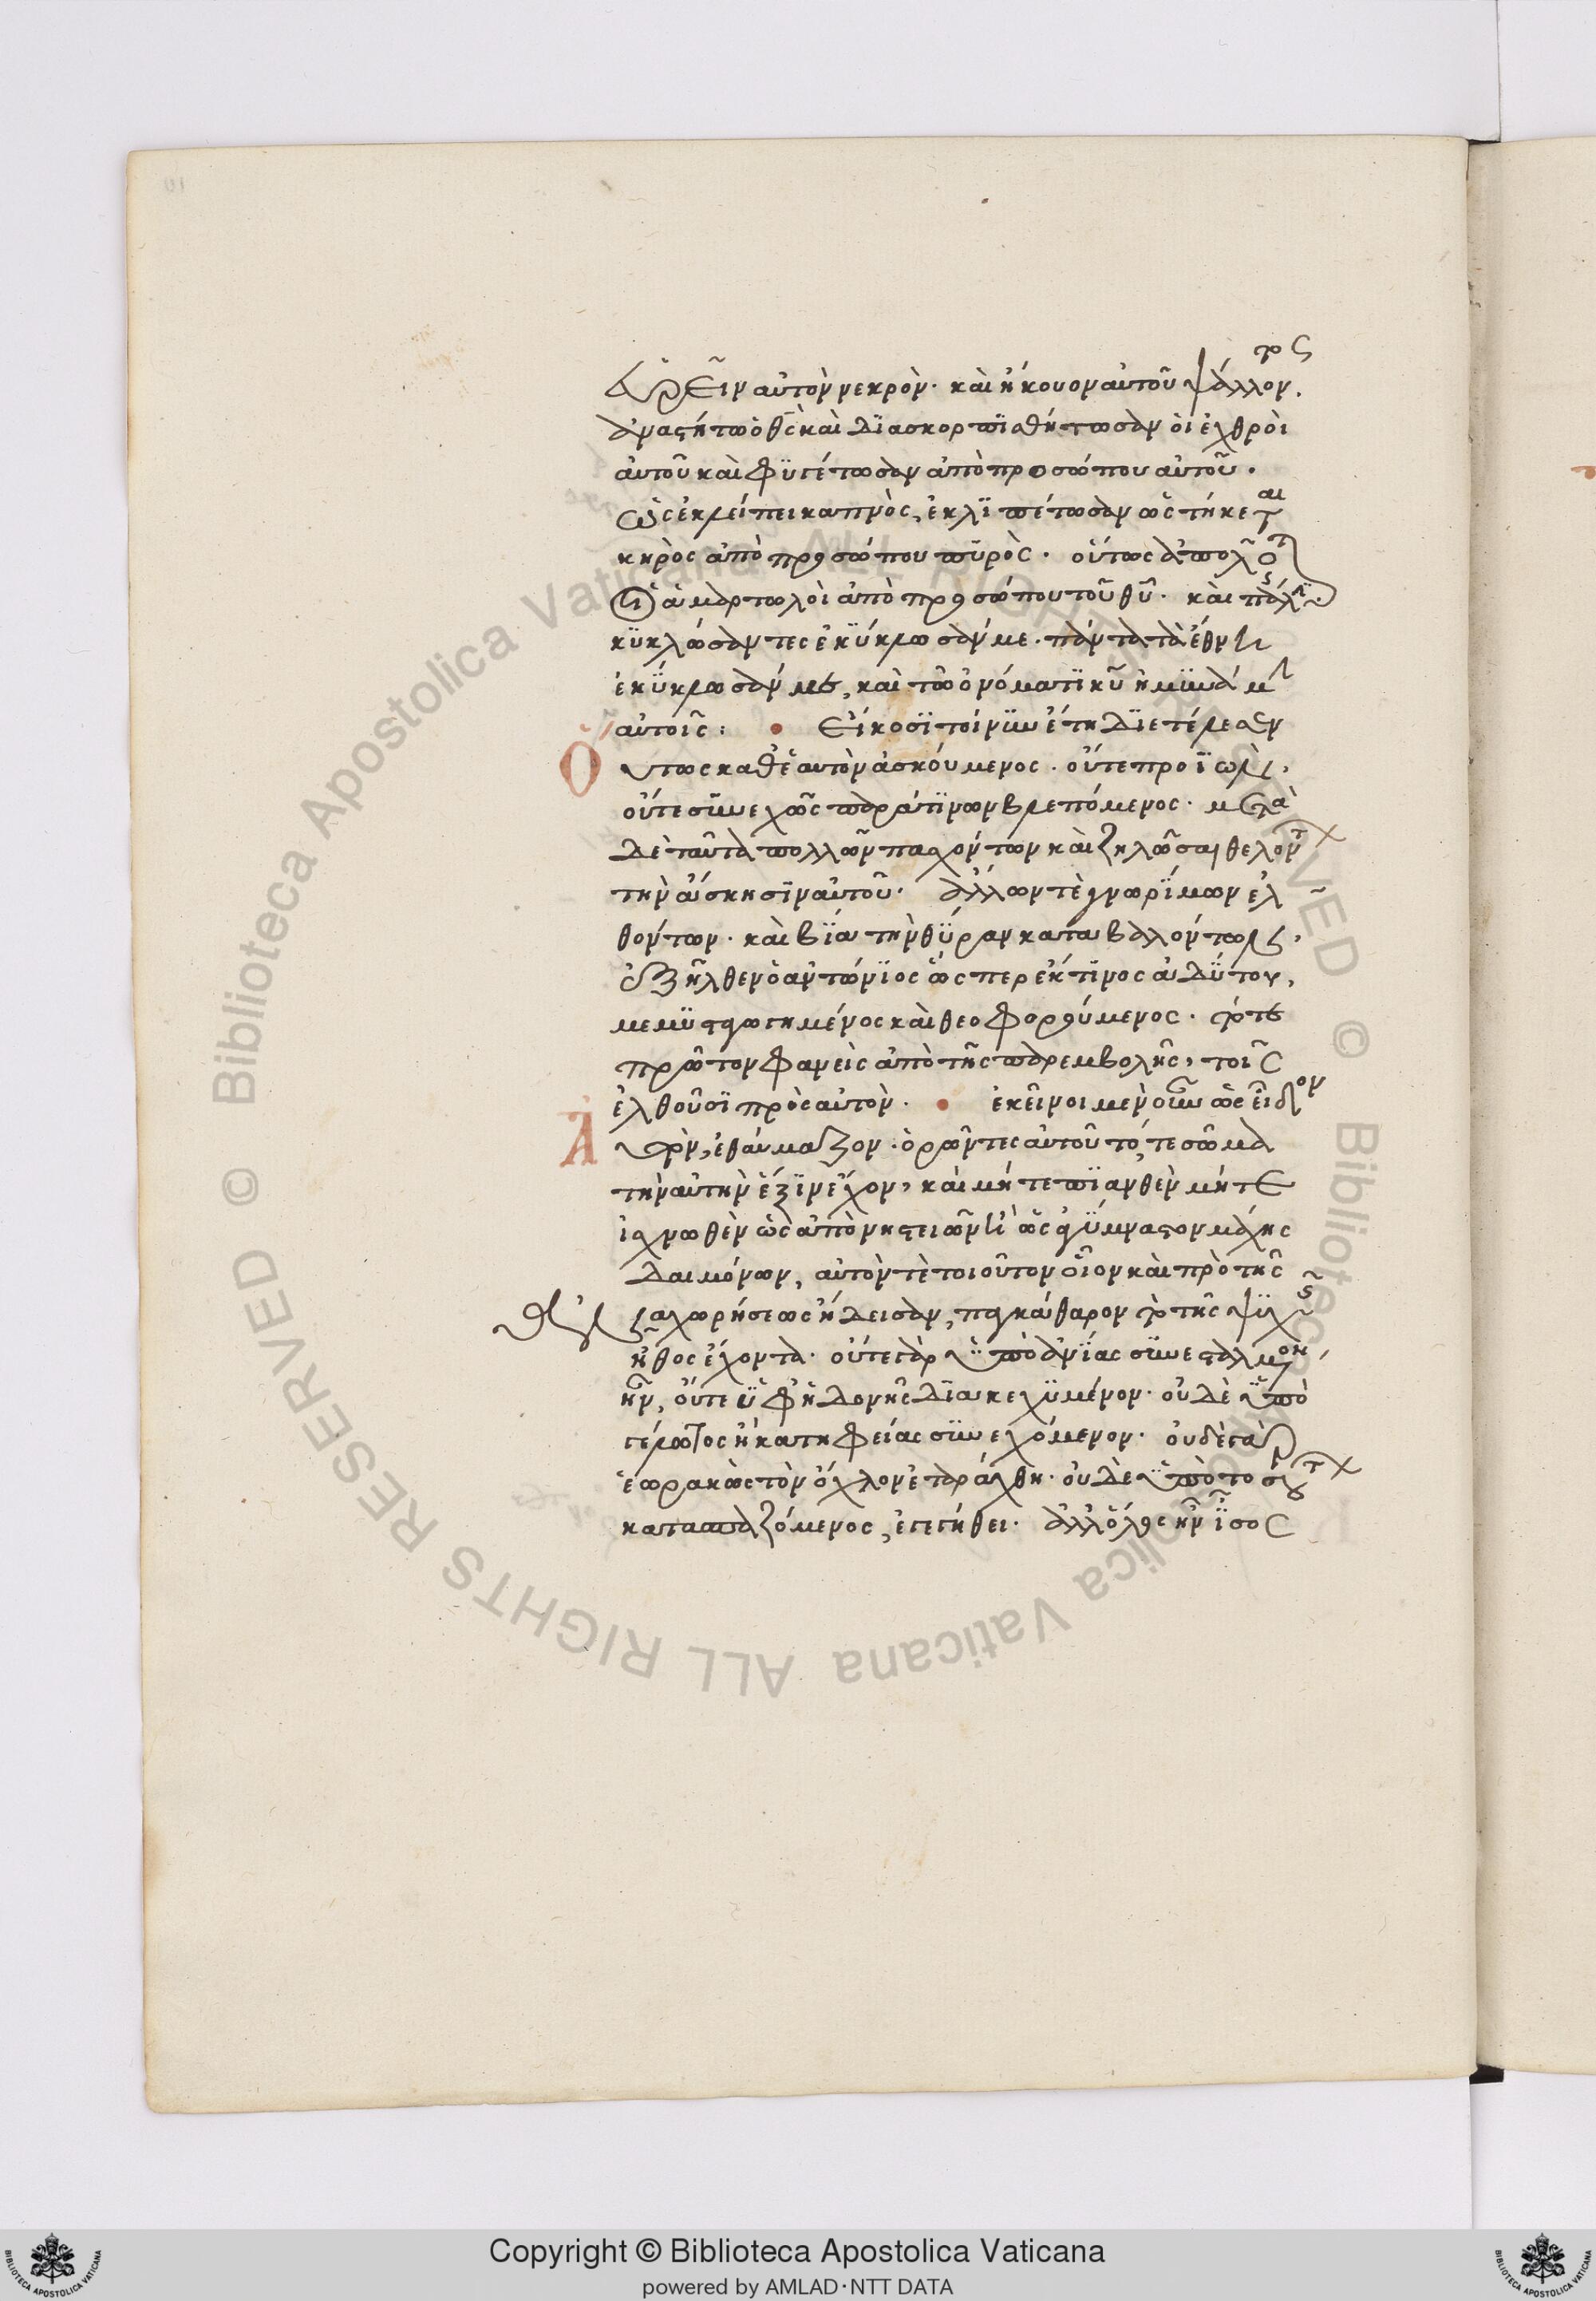 εὑρεῖν αὐτὸν νεκρὸν· καὶ ἤκουον αὐτοῦ ψάλλοντος·
ἀναστήτω ὁ θς καὶ διασκορπισθήτωσαν οἱ ἐχθροὶ
αὐτοῦ καὶ φυγέτωσαν ἀπὸ προσώπου αὐτοῦ·
ὡς ἐκλείπει καπνὸς, ἐκλιπέτωσαν ὡς τήκεται
κηρὸς ἀπὸ προσώπου πυρὸς· οὕτως ἀπολοῦνται
οἱ ἁμαρτωλοὶ ἀπὸ προσώπου τοῦ θυ· καὶ πάλιν·
κυκλώσαντες ἐκύκλωσάν με· πάντα τὰ ἔθνη
ἐκύκλωσάν με, καὶ τῶ ὀνόματι κυ ἠμυνάμην
αὐτοῖς: • Εἴκοσι τοίνυν ἔτη διετέλεσεν
Οὕτως καθ' ἑαυτὸν ἀσκούμενος· οὔτε προϊὼν,
οὔτε συνεχῶς παρά τινων βλεπόμενος· μετὰ
δὲ ταῦτα πολλῶν ποθούντων καὶ ζηλῶσαι θελόντων
τὴν ἄσκησιν αὐτοῦ· ἄλλων τὲ γνωρίμων ἐλ
θόντων· καὶ βία τὴν θύραν καταβαλόντων,
ἐξῆλθεν ὁ ἀντώνιος ὥσπερ ἔκ τινος ἀδύτου,
μεμυσταγωγημένος καὶ θεοφορούμενος· τότε
πρῶτον φανεὶς ἀπὸ τῆς παρεμβολῆς, τοῖς
ἐλθοῦσι πρὸς αὐτὸν· • ἐκεῖνοι μὲν οὖν ὡς εἶδον
Αὐτὸν, ἐθαύμαζον· ὁρῶντες αὐτοῦ τό, τε σῶμα
τὴν αὐτὴν ἕξιν ἔχον, καὶ μήτε πιανθὲν μήτε
ἰσχνωθὲν ὡς ἀπὸ νηστειῶν καὶ μάχης
δαιμόνων, αὐτόν τὲ τοιοῦτον οἷον καὶ πρὸ τῆς
ἀναχωρήσεως ἤδεισαν, καθαρὸν τῆς ψυχῆς
ἦθος ἔχοντα· οὔτε γὰρ ὑπὸ ἀνίας συνεσταλμένον
ἦν, οὔτε ὑφ' ἡδονῆς διακεχυμένον· οὐδὲ ὑπὸ
γέλωτος ἢ κατηφείας συνεχόμενον· οὐδὲ γὰρ
ἑωρακὼς τὸν ὄχλον ἐταράχθη· οὐδὲ ὑπὸ τοσούτων
κατασπαζόμενος, ἐγεγήθει· ἀλλ' ὅλος ἦν ἴσος